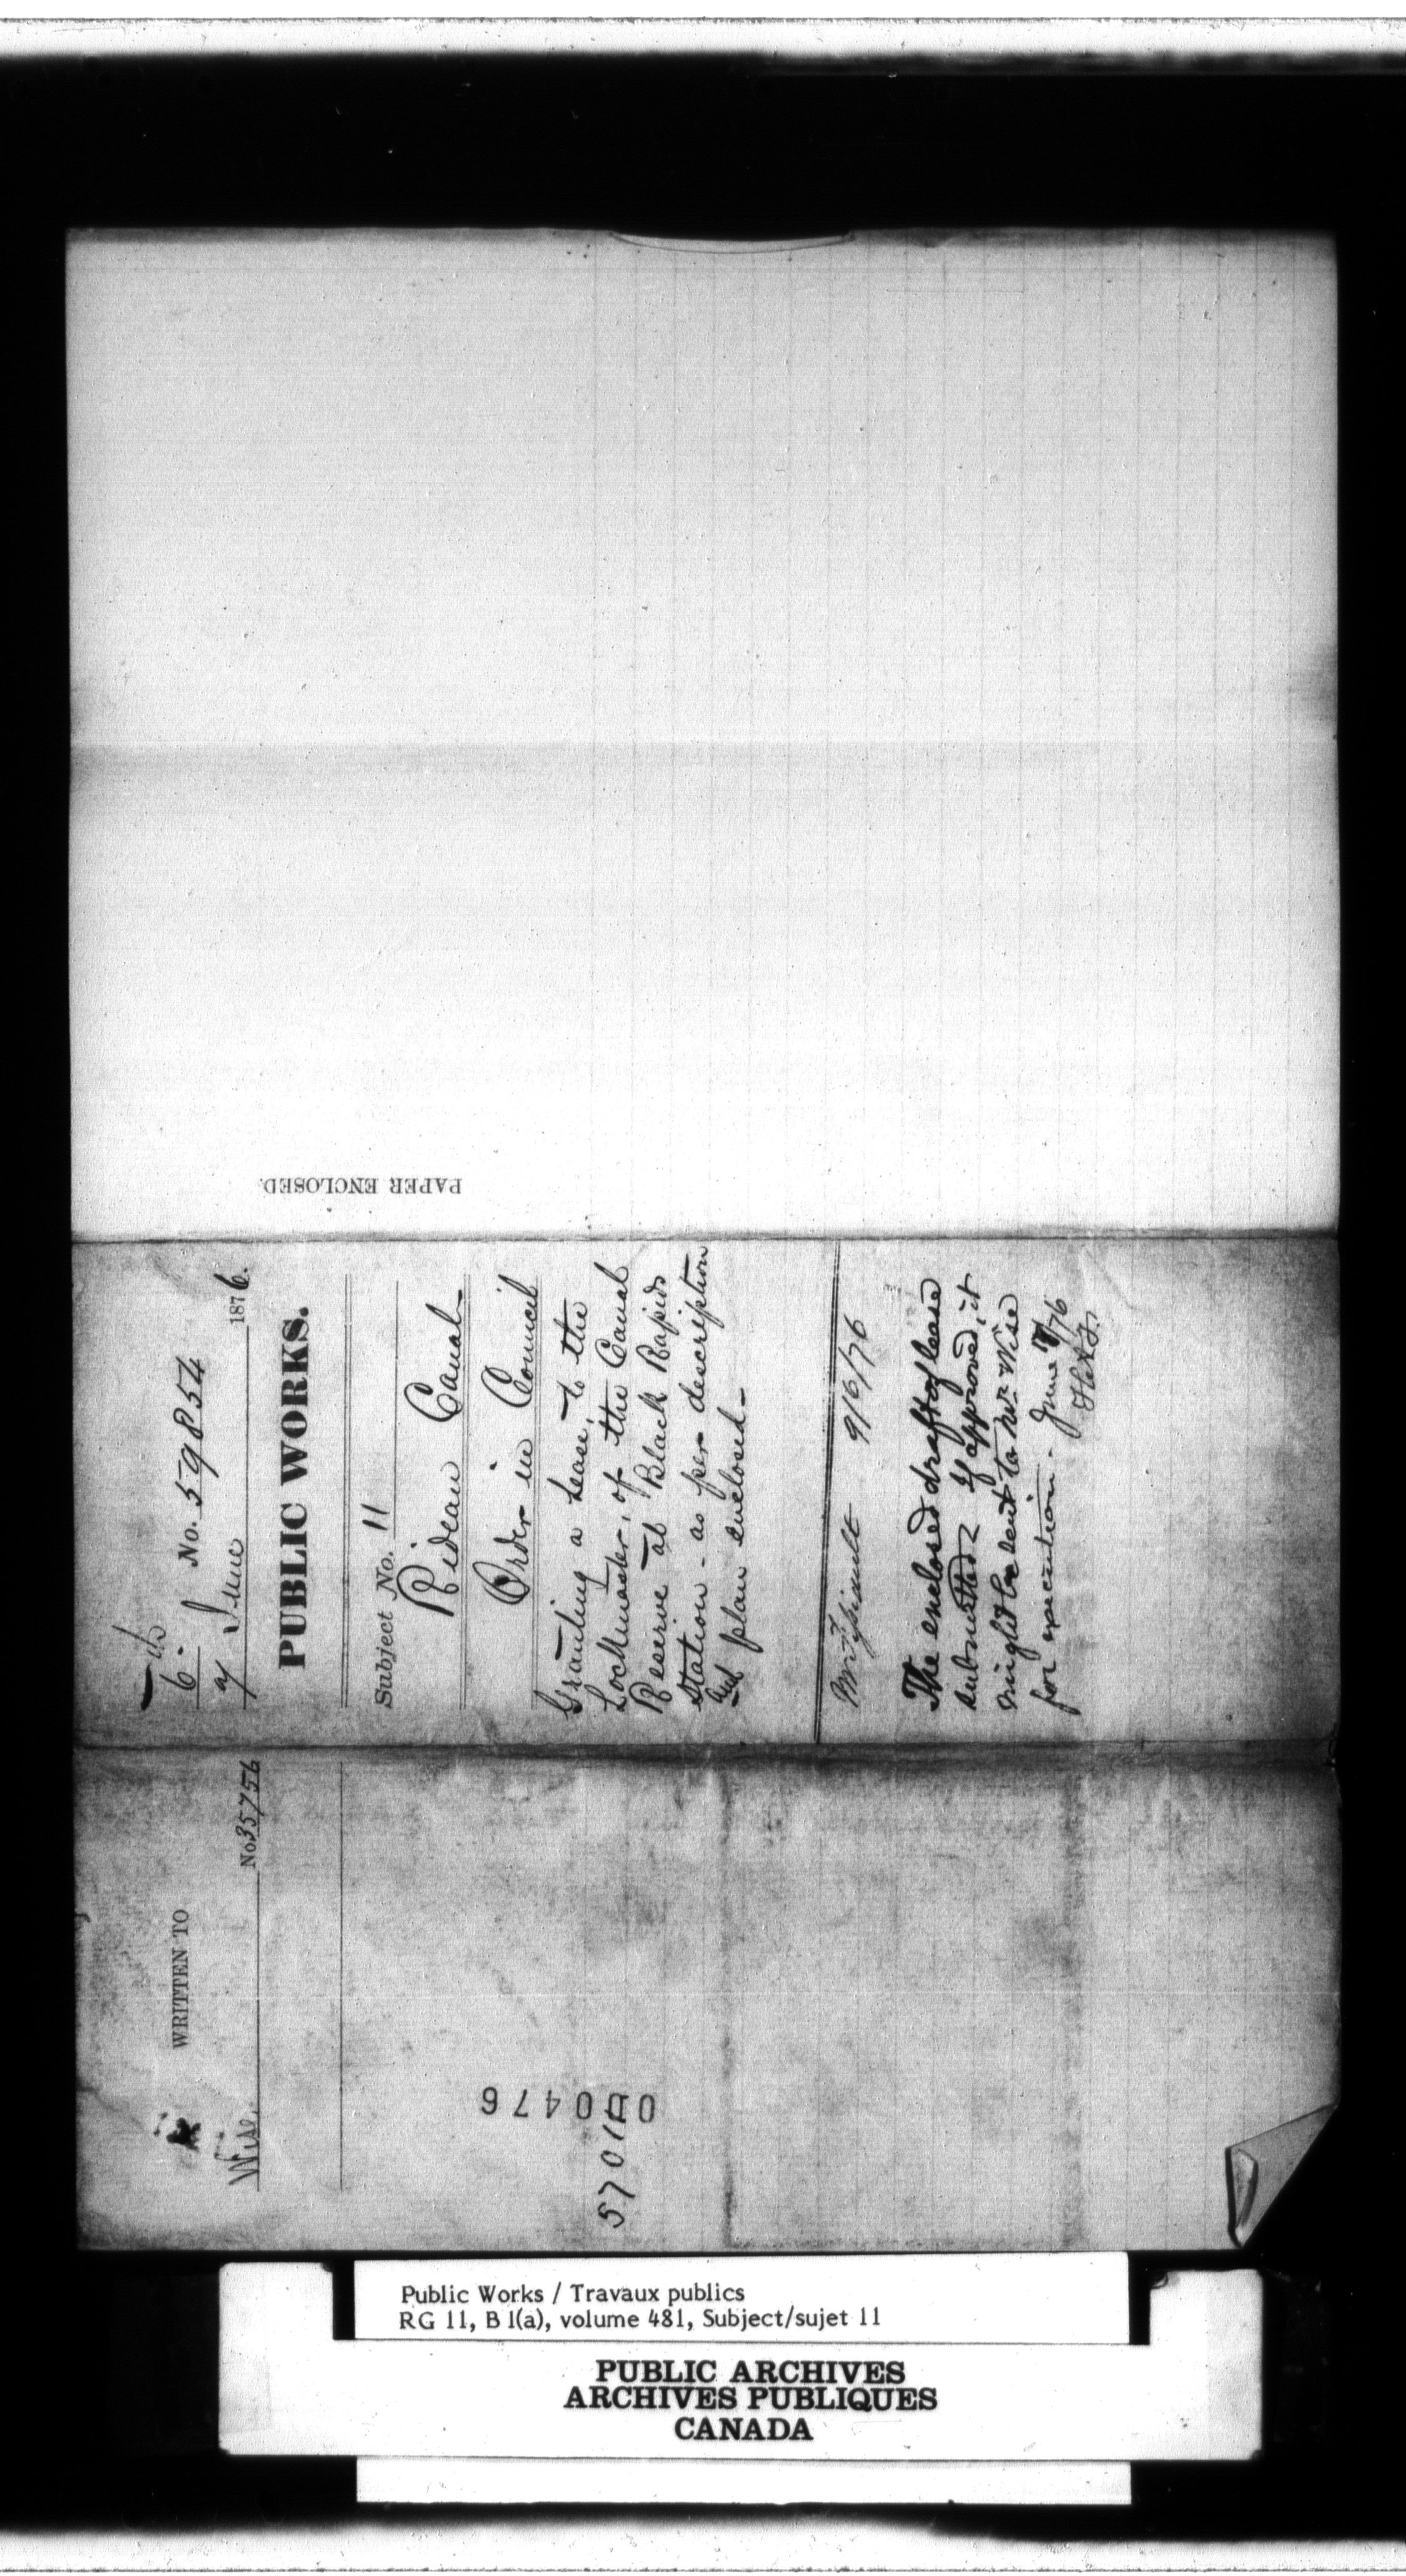 PAPER ENCLOSED.
6th No. 59854
June 1876.
PUBLIC WORKS.
Subject No. 11
Rideau Canal
Order in Council
Granting a Lease, to the
Lockmaster, of the Canal
Reserve at Black Rapids
Station - as per description
and plan enclosed -
9/6/76
The enclosed draft of lease
submitted If approved, it
might be sent to Mr Wise
for execution. June 7/76
WRITTEN TO
Wise. No 35756
57017
Public Works / Travaux publics
RG 11, B 1(a), volume 481, Subject/sujet 11
PUBLIC ARCHIVES
ARCHIVES PUBLIQUES
CANADA